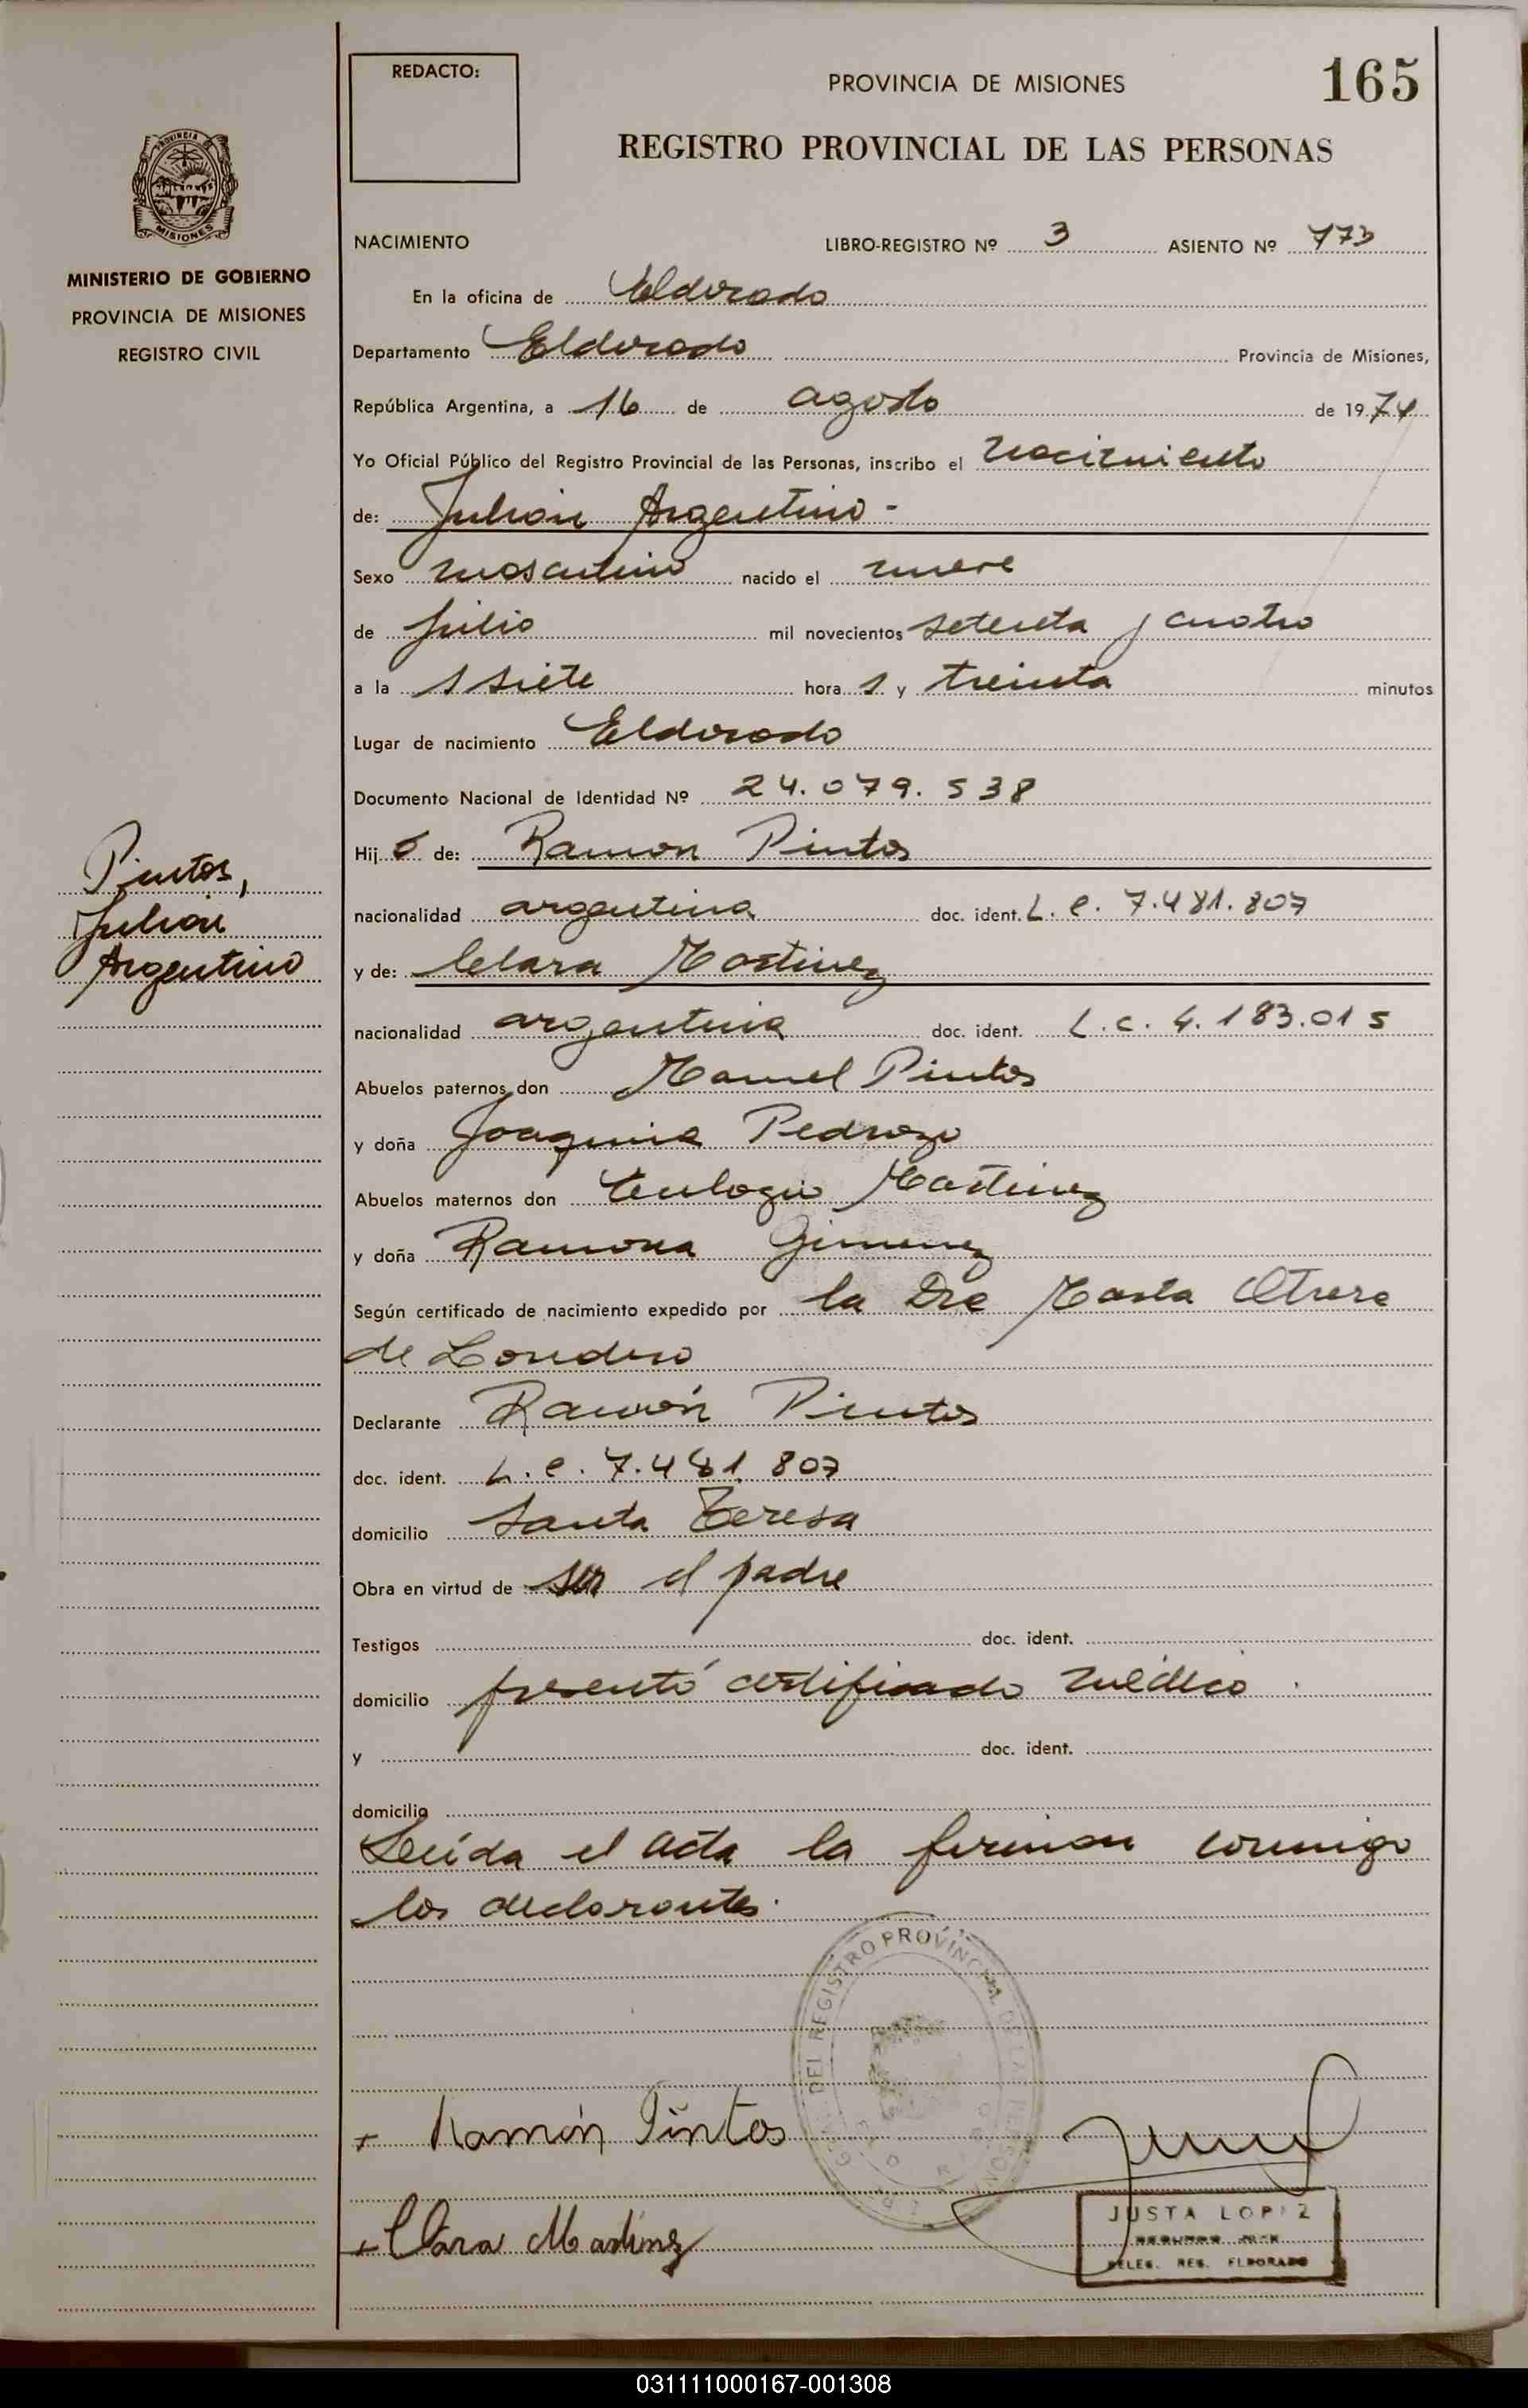 REDACTO:
PROVINCIA DE MISIONES
165
REGISTRO PROVINCIAL DE LAS PERSONAS
PROVINCIA
MISIONES
MINISTERIO DE GOBIERNO
PROVINCIA DE MISIONES
REGISTRO CIVIL
NACIMIENTO LIBRO-REGISTRO Nº 3 ASIENTO Nº 773
En la oficina de Eldorado
Departamento Eldorado Provincia de Misiones,
República Argentina, a 16 de agosto de 1974
Yo Oficial Público del Registro Provincial de las Personas, inscribo el nacimiento
de: Julián Argentino -
Sexo masculino nacido el nueve
de julio mil novecientos setenta y cuatro
a la s siete hora s y treinta minutos
Lugar de nacimiento Eldorado
Documento Nacional de Identidad Nº 24.079.538
Hij o de: Ramon Pintos
Pintos,
Julián
Argentino
nacionalidad argentina doc. ident. L. e. 7.481.807
y de: Clara Martinez
nacionalidad argentina doc. ident. L.c. 4.183.015
Abuelos paternos don Manuel Pintos
y doña Joaquina Pedrozo
Abuelos maternos don Eulogio Martinez
y doña Ramona Gimenez
Según certificado de nacimiento expedido por la Dra Marta
de Londero
Declarante Ramón Pintos
doc. ident. L. e. 7.481.807
domicilio Santa Teresa
Obra en virtud de ser el padre
Testigos doc. ident.
domicilio presentó certificado médico.
y doc. ident.
domicilio
Leída el acta la firman conmigo
los declarantes.
DEL REGISTRO PROVINCIAL DE LAS PERSONAS
+ Ramón Pintos
+ Clara Martinez
JUSTA LOPEZ
DELEG. REG. ELDORADO
031111000167-001308